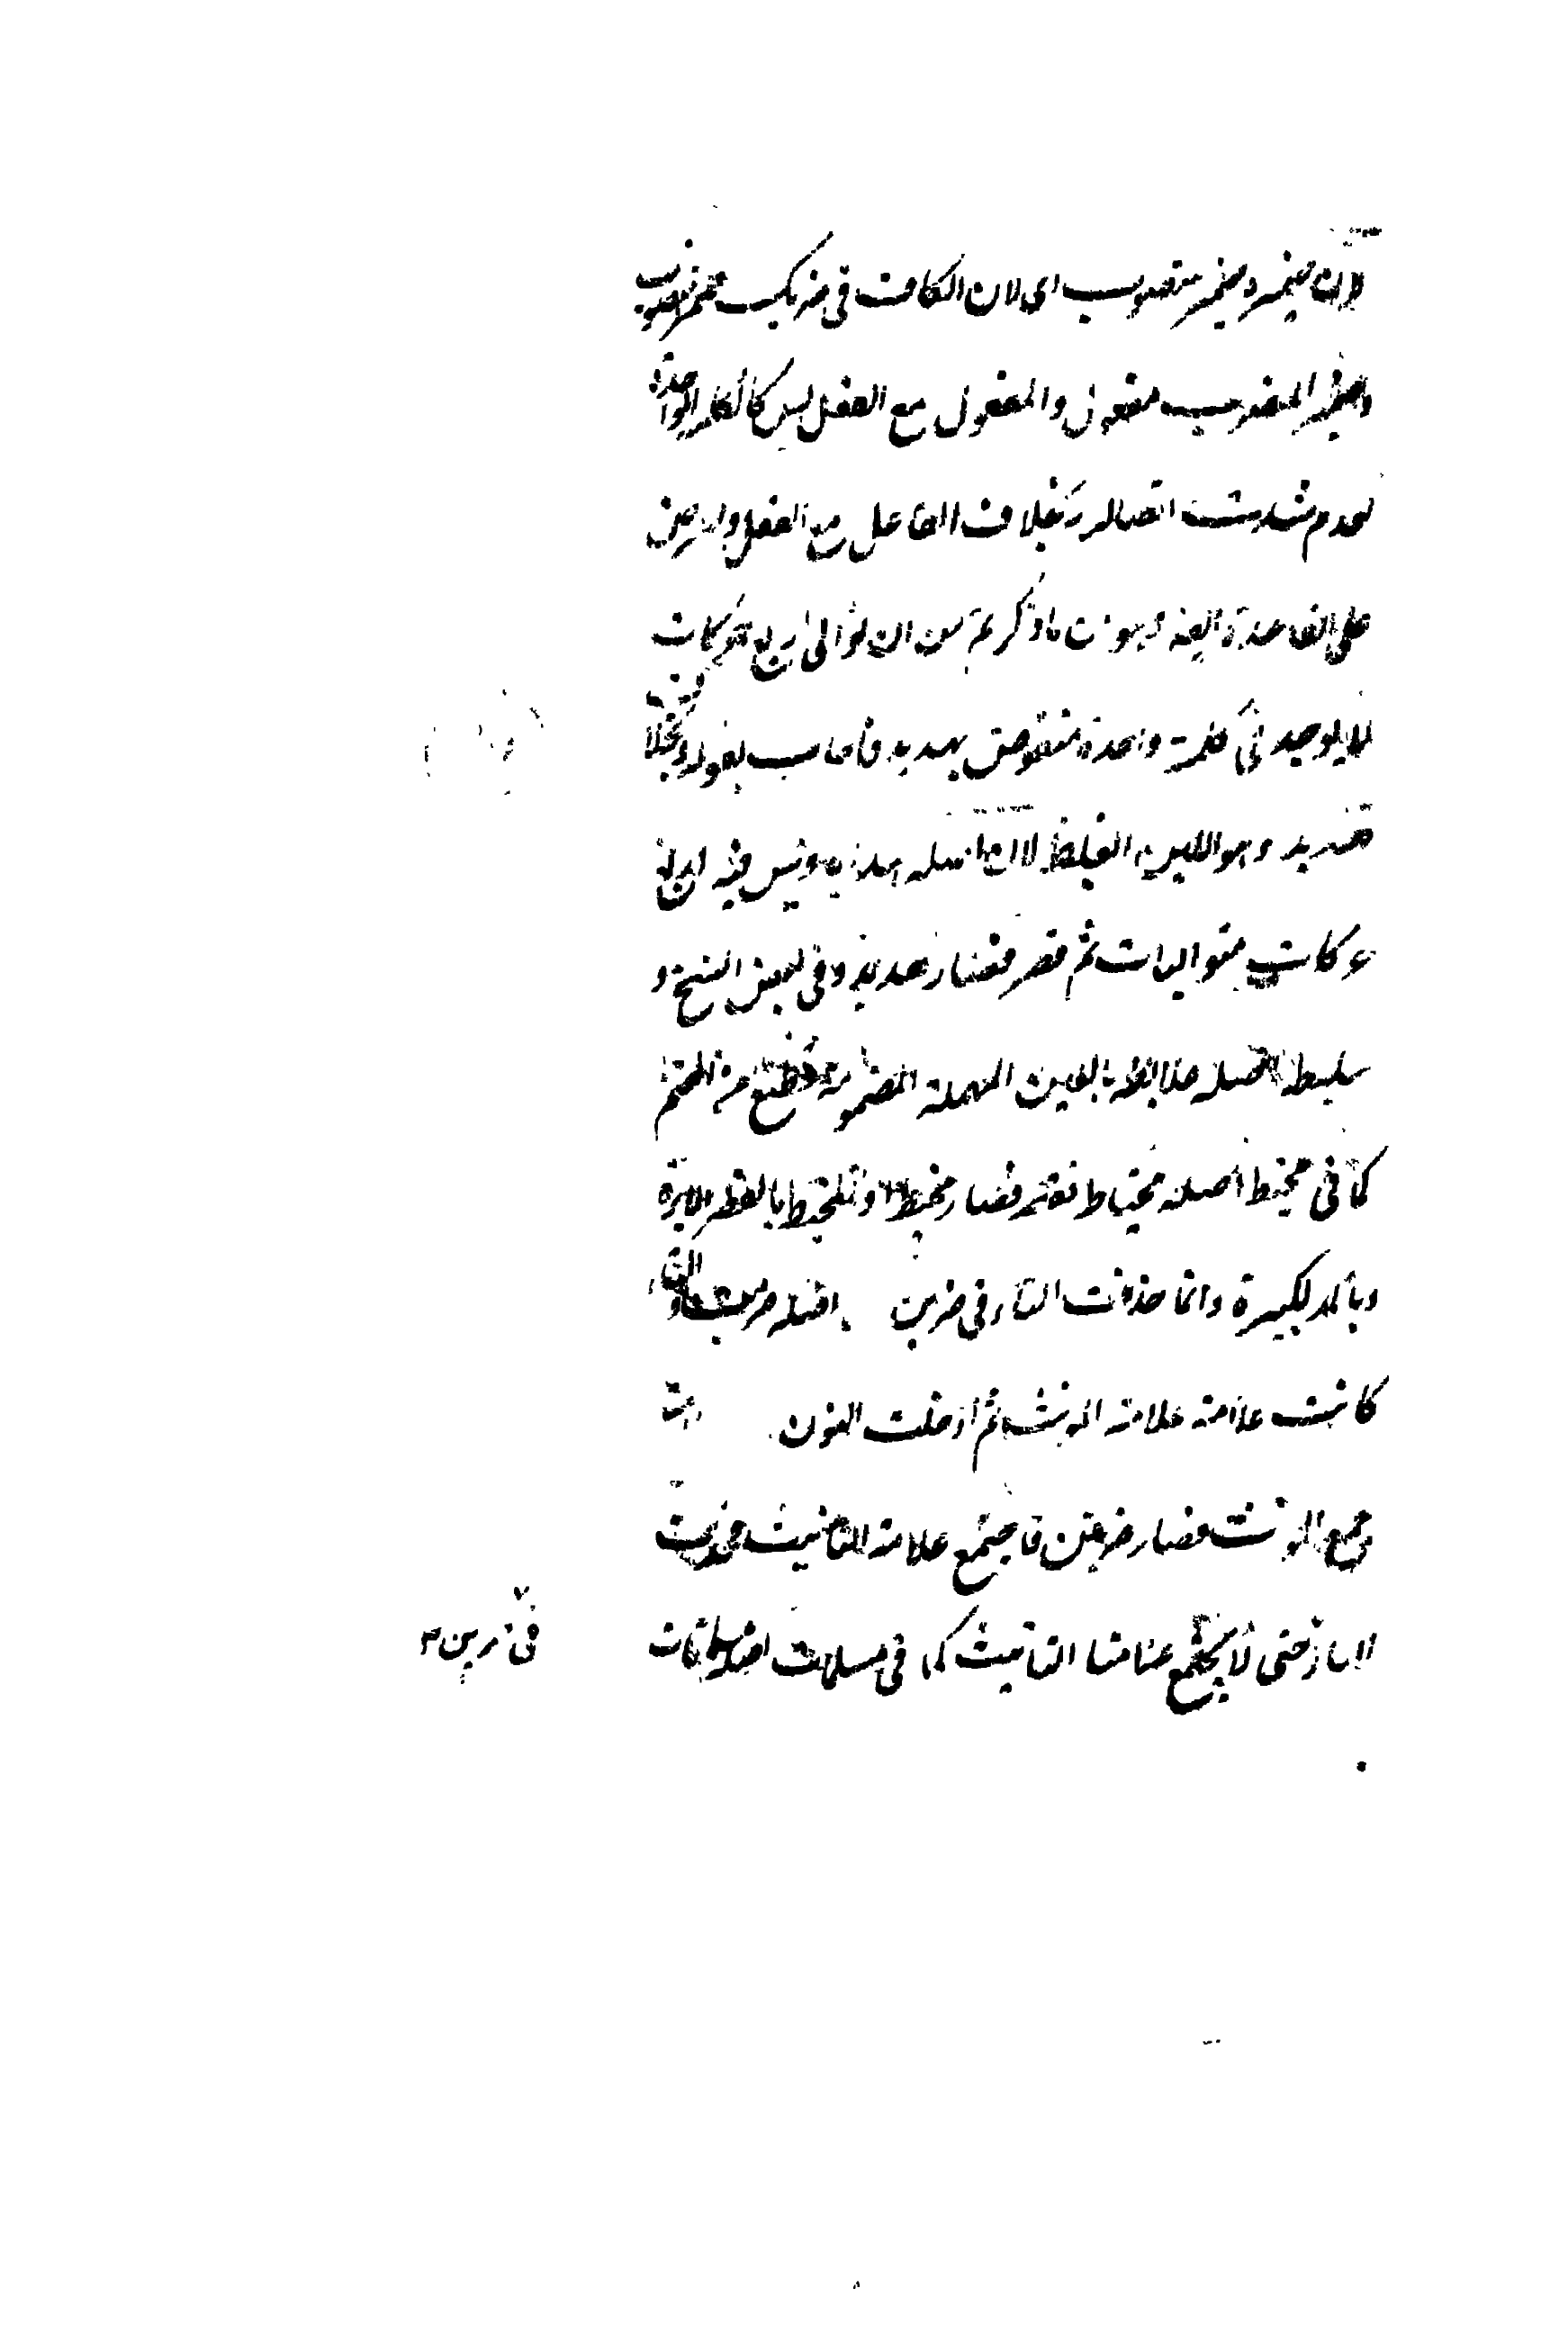 لان ضميره ضمير منصوب اى لان الكاف فى ضربك ضمير منصوب
وضمير المنصوب مفعول والمفعول مع الفعل ليس كالكلمة الواحدة
لعدم شدت اتصاله بخلاف الفاعل مع الفعل
على القاعدة ما ذكرتم من ان توالى اربع حركات
لا يوجد فى كلمة واحدة منقوض بهدبد فاجاب بقوله وبخلاف
هدبد وهو اللبن الغليظ لان اصله هدابد وليس فيه اربع
حركات متواليات ثم قصر فصار هدبد وفى بعض النسخ و
علبط اصله علابط بالعين المهملة المضمومة قطيع من الغنم
كما فى مخيط اصله مخياط فقصر فصار مخيط المخيط بالقصر للابرة
وبالمد لكبيرة وانما حذفت التاء فى ضربن اصله ضربت التاء
كانت علامة علامة المؤنث ثم ادخلت النون
جمع المؤنث فصار ضربتن فاجتمع علامة التانيث فحذفت
التاء حتى لا يجتمع علامتا التانيث كما فى مسلمات اصله
فى ضربن